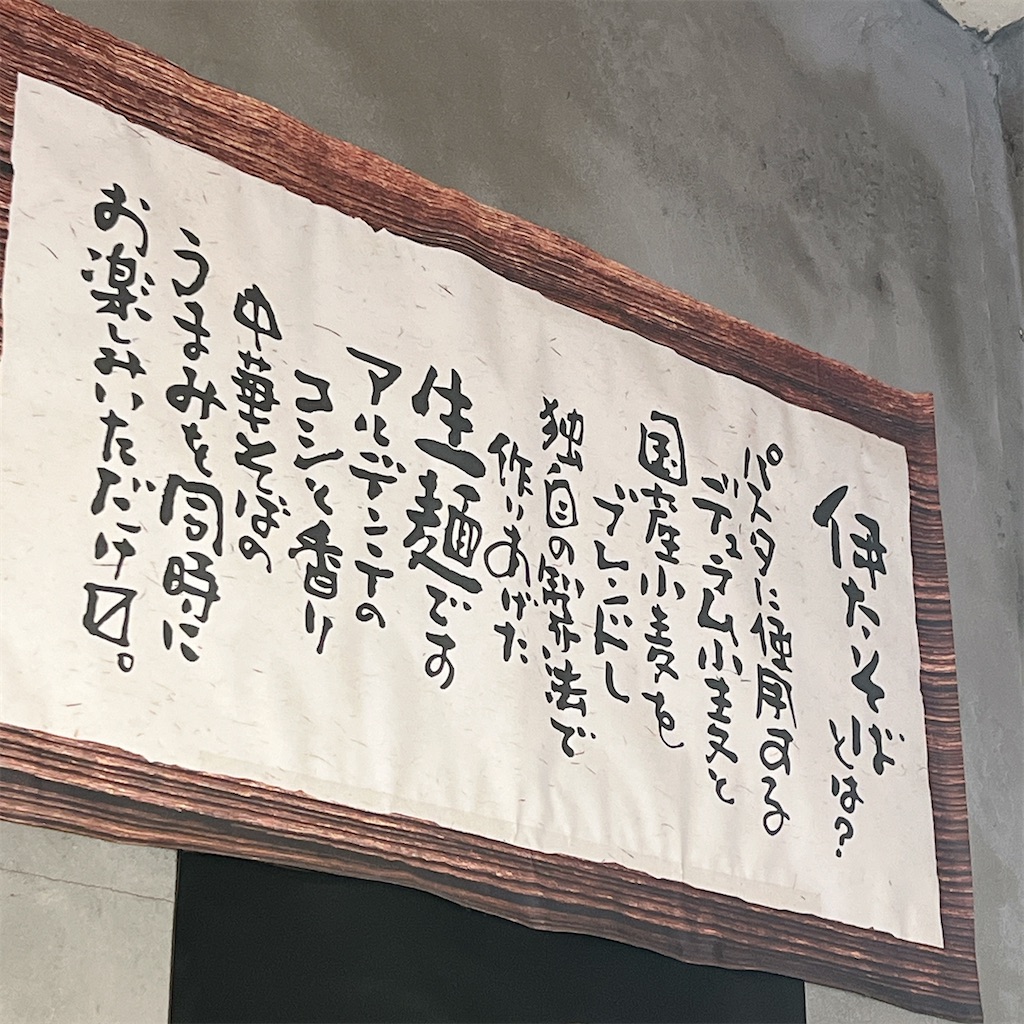 伊たそば
とは？
パスタに使用する
デュラム小麦と
国産小麦を
ブレンドし
独自の製法で
作りあげた
生麺です
アルデンテの
コシと香り
中華そばの
うまみを同時に
お楽しみいただけ〼。